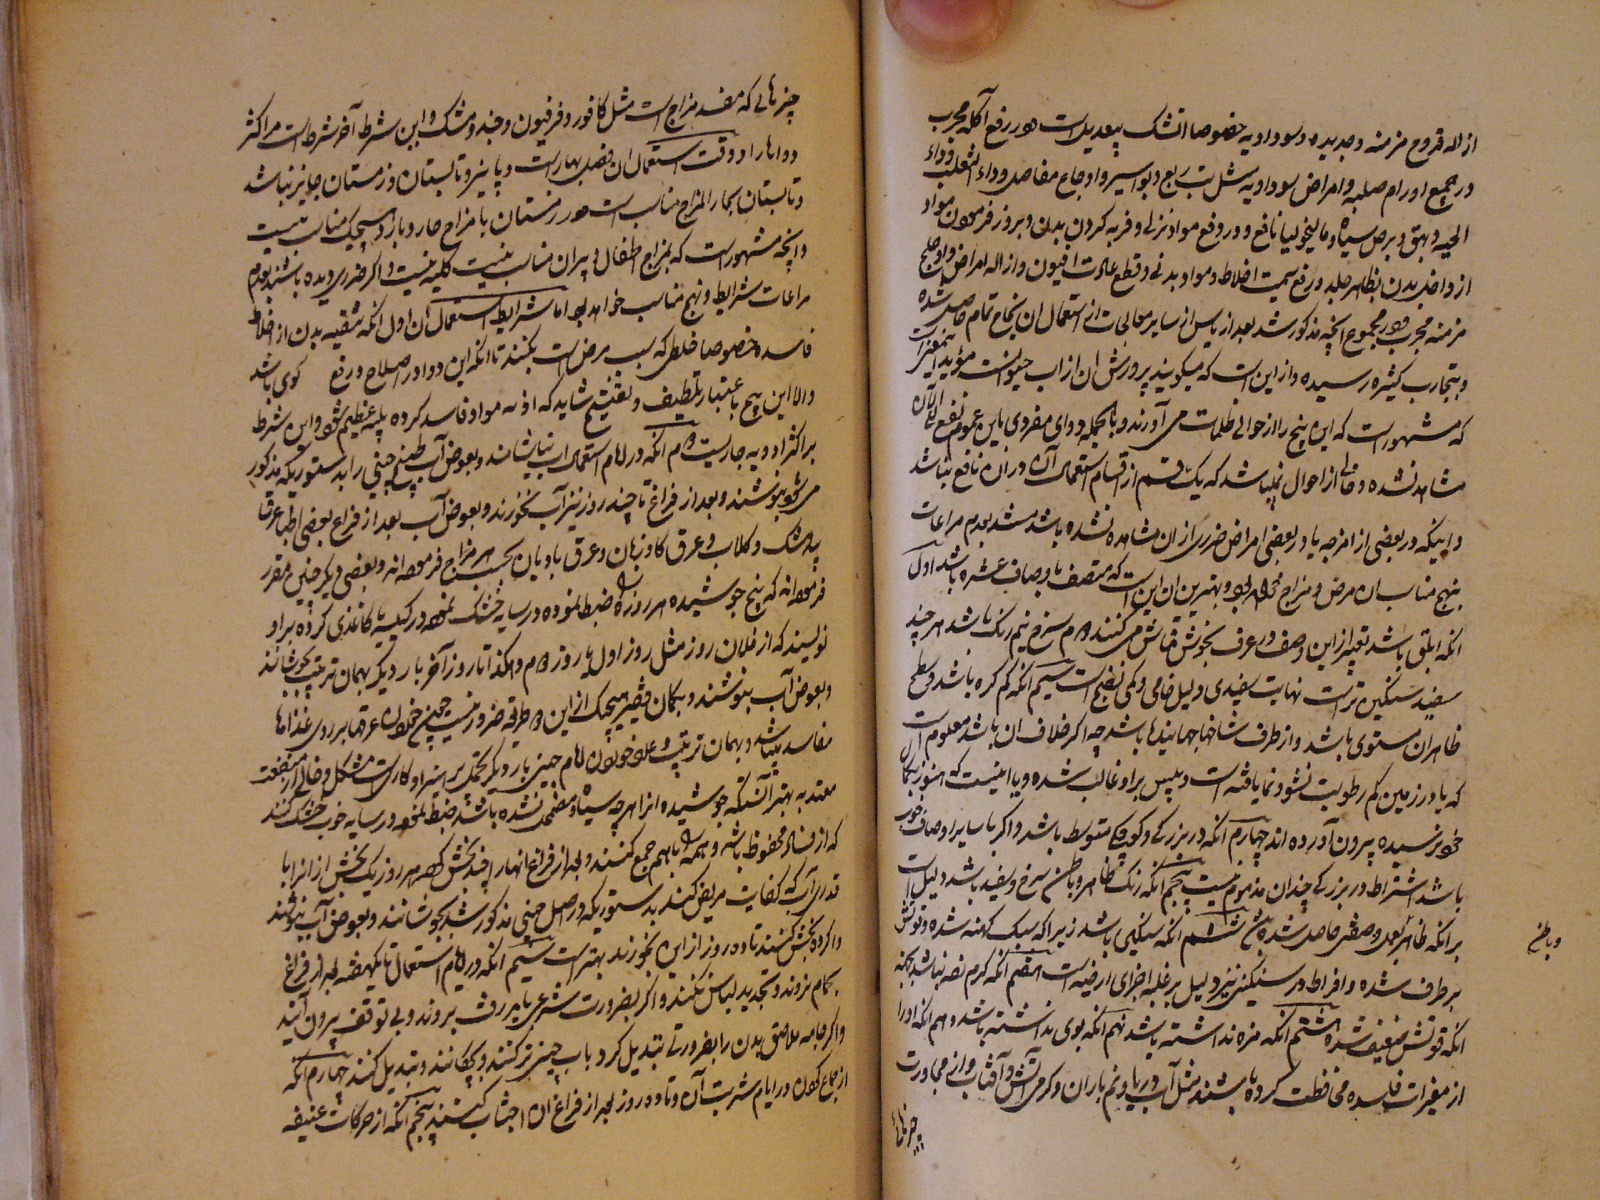 ازاله قروح مزمنه و جدیده و سوداویه خصوصا اتشک بیعدیل است و در رفع آکله مجرب
در جمیع اورام صلبه و امراض سوداویه مثل تب ربع و بواسیر و اوجاع مفاصل و داء الثعلب و داء
الحیه و بهق و برص سیاه و مالیخولیا نافع و در دفع مواد نزلی و فربه کردن بدن و بروز فرمودن مواد
از داخل بدن بظاهر جلد و رفع سمیت اخلاط و مواد بدنی و قطع عادت افیون و ازاله امراض
مزمنه مجرب و در مجموع انچه مذکور شد بعد از یاس از سایر معالجات از استعمال ان نجاح تمام حاصل شده
و بتجارب کثیره رسیده و از این است که میگویند پرورش ان از اب حیوانست مؤید
که مشهور است که این بیخ را از حوالی ظلمات می آورند و بالجمله دوای مفردی باین عموم نفع الی الان
مشاهد نشده و حالی از احوال نمیباشد که یک قسم از اقسام استعمال آن در ان نافع نباشد
و اینکه در بعضی از امزجه یا در بعضی امراض ضرری از ان مشاهده شده باشد بعدم مراعات
بنهج مناسب ان مرض و مزاج خواهد بود و بهترین ان اینست که متصف باوصاف عشره باشد اول
انکه ابلق باشد تعبیر از این وصف در عرف بخوش قماش می کنند دوم سرخ نیم رنک باشد هر چند
سفید سنکین تر است نهایت سفیدی دلیل خامی و کمی نضج است سیم انکه کم کره باشد و سطح
ظاهر ان مستوی باشد و از طرف شاخها جهانیدها باشد چه اکر خلاف ان باشد معلوم است
که یا در زمین کم رطوبت نشو و نما یافته است و یبس بر او غالب شده و یا اینست که هنوز بکمال
خود نرسیده بیرون آورده اند چهارم آنکه در بزرکی و کوچکی متوسط باشد و اکر با سایر اوصاف خوب
باشد اشتراط در بزرکی چندان مذموم نیست پنجم انکه رنک ظاهر و باطن سرخ و سفید باشد دلیل است
بر انکه ظاهر وصفش حاصل شده ششم انکه سنکین باشد زیرا که سبک کهنه شده و قوتش
بر طرف شده و افراط در سنکینی نیز دلیل بر غلبه اجزای ارضیه است هفتم انکه کرم نباشد
انکه قوتش ضعیف شده هشتم انکه مزه نداشته باشد نهم آنکه بوی نداشته باشد دهم انکه او را
از مغیرات فاسده محافظت کرده باشند مثل آب دریا و نم باران و کرمی آتش و آفتاب و از مجاورت
چیزهائی
و باطن
چیزهائی که مفسد مزاج است مثل کافور و فرفیون و جند و مشک و این شرط آخر شرط است در اکثر
دواها و وقت استعمال ان فصل بهار است و پائیز و تابستان و زمستان جایز نباشد
و تابستان بحار المزاج مناسب است و در زمستان با مزاج حار و بارد هیچیک مناسب نیست
و انچه مشهور است که بمزاج اطفال و پیران مناسب نیست کلیه نیست و اکر ضرری دیده باشند بعدم
مراعات شرایط و نهج مناسب خواهد بود اما شرایط استعمال ان اول انکه تنقیه بدن از اخلاط
فاسده خصوصا خلطی که سبب مرض است بکنند تا انکه این دوا در اصلاح و رفع قوی باشد
والا این بیخ باعتبار تلطیف و تفتیح شاید که اذابه مواد فاسد کرده بلیه عظیم شود و این شرط
بر اکثر ادویه جاریست دوم انکه در ایام استعمال اب نیاشامند و بعوض آب طبیخ چینی را بدستوریکه مذکور
می شود بنوشند و بعد از فراغ تا چند روز نیز آب نخورند و بعوض آب بعد از فراغ بعضی اطبا عرق
بیدمشک و کلاب و عرق کاوزبان و عرق بادیان بحسب هر مزاج فرموده اند و بعضی دیکر چنین مقرر
فرموده اند که بیخ جوشیده هر روزه را ضبط نموده در سایه خشک نموده در کیسه یا کاغذی کرده بر او
نویسند که از فلان روز مثل روز اول یا روز دوم و هکذا تا روز آخر بار دیکر بهمان ترتیب بجوشانند
و بعوض آب بنوشند و بکمان فقیر هیچیک از این دو طریقه ضرور نیست
مفاسد میباشد و بهمان ترتیب
معتد به بهتر آنستکه جوشیده از هر چه سیاه و مضمحل نشده باشد ضبط نموده در سایه خوب خشک کنند
که از فساد محفوظ باشد و همه را با هم جمع کنند و بعد از فراغ انها را چند بخش کرده هر روز یک بخش از انرا با
قدری آب که کفایت مریض کند بدستوریکه در اصل چینی مذکور شد بجوشانند و بعوض آب بنوشند
و اکر ده بخش کنند تا ده روز از این بخورند بهتر است سیم انکه در ایام استعمال تا یکهفته بعد از فراغ
بحمام نروند و تجدید لباس نکنند و اکر بضرورت شرعی باید رفت بروند و بی توقف بیرون آیند
و اکر جامه ملاصق بدن را بضرورتی تبدیل کرد باب چینی تر کنند و بخشکانند و تبدیل کنند چهارم انکه
از جماع کردن در ایام شربت آن و تا ده روز بعد از فراغ ان اجتناب کنند پنجم انکه از حرکات عنیفه